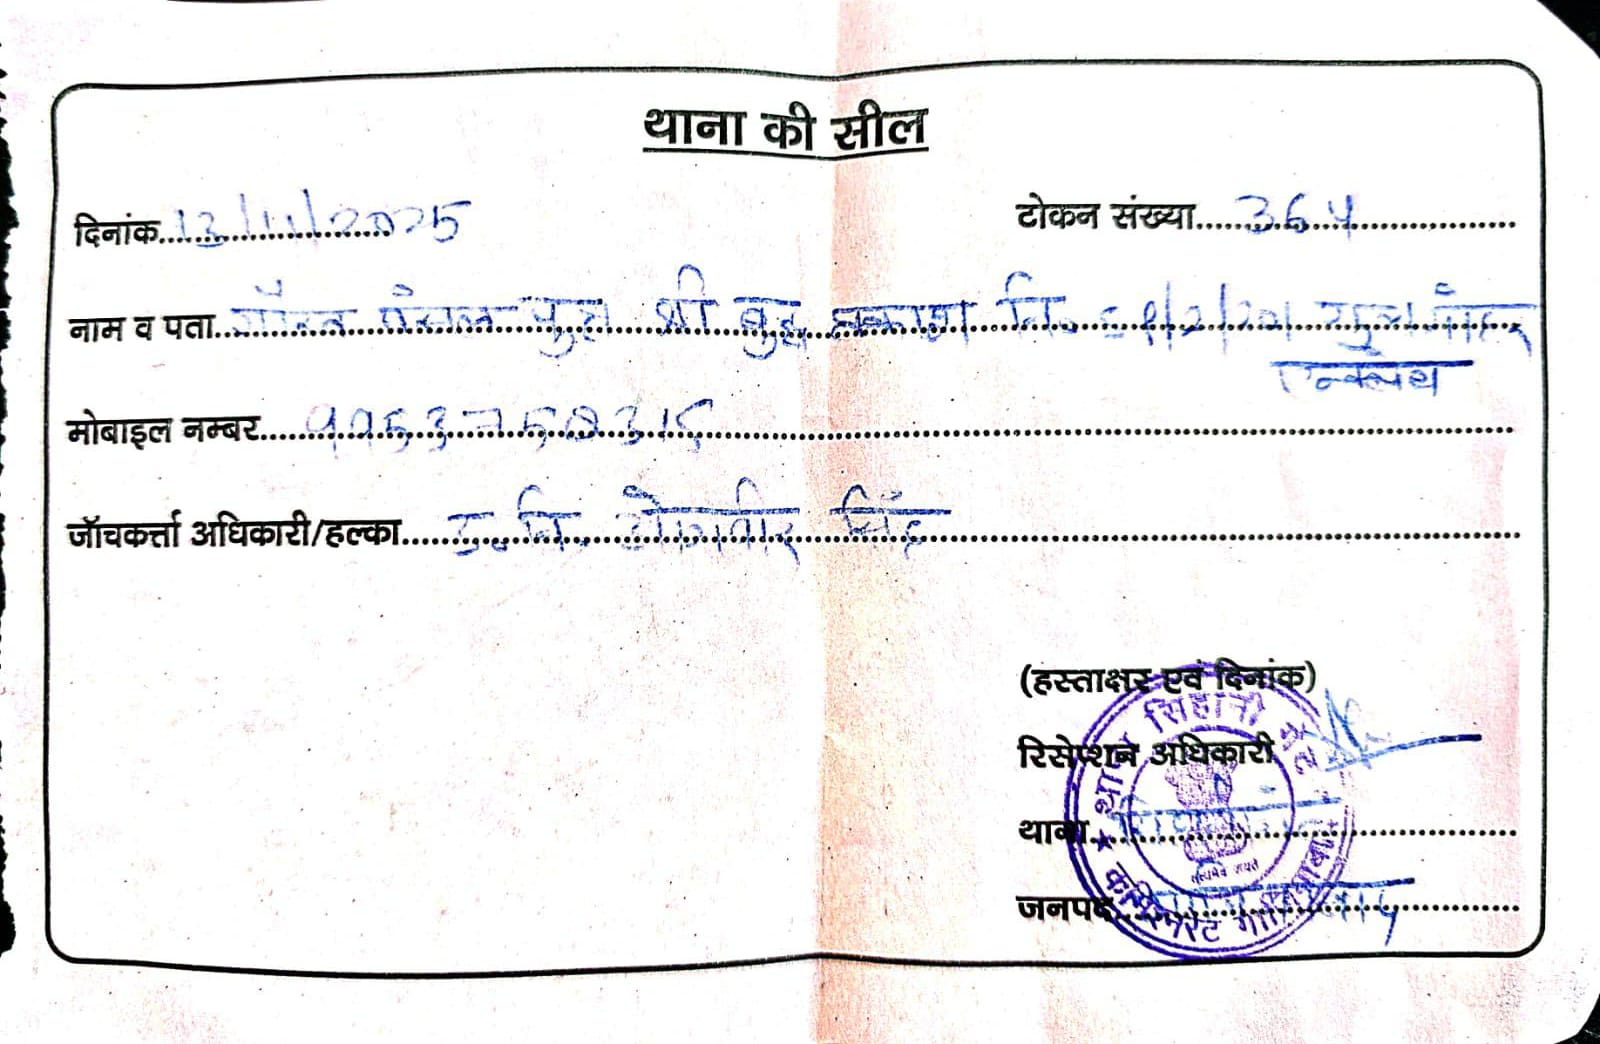 थाना की सील
दिनांक 13/11/2025 टोकन संख्या 364
नाम व पता गौरव पुत्र श्री बुद्ध प्रकाश नि०
एन्क्लेव
मोबाइल नम्बर
जॉचकर्त्ता अधिकारी/हल्का उ.नि. ओमवीर सिंह
(हस्ताक्षर एवं दिनांक)
रिसेप्शन अधिकारी
थाना
जनपद
थाना सिहानी गेट
कमिश्नरेट गाजियाबाद
सत्यमेव जयते